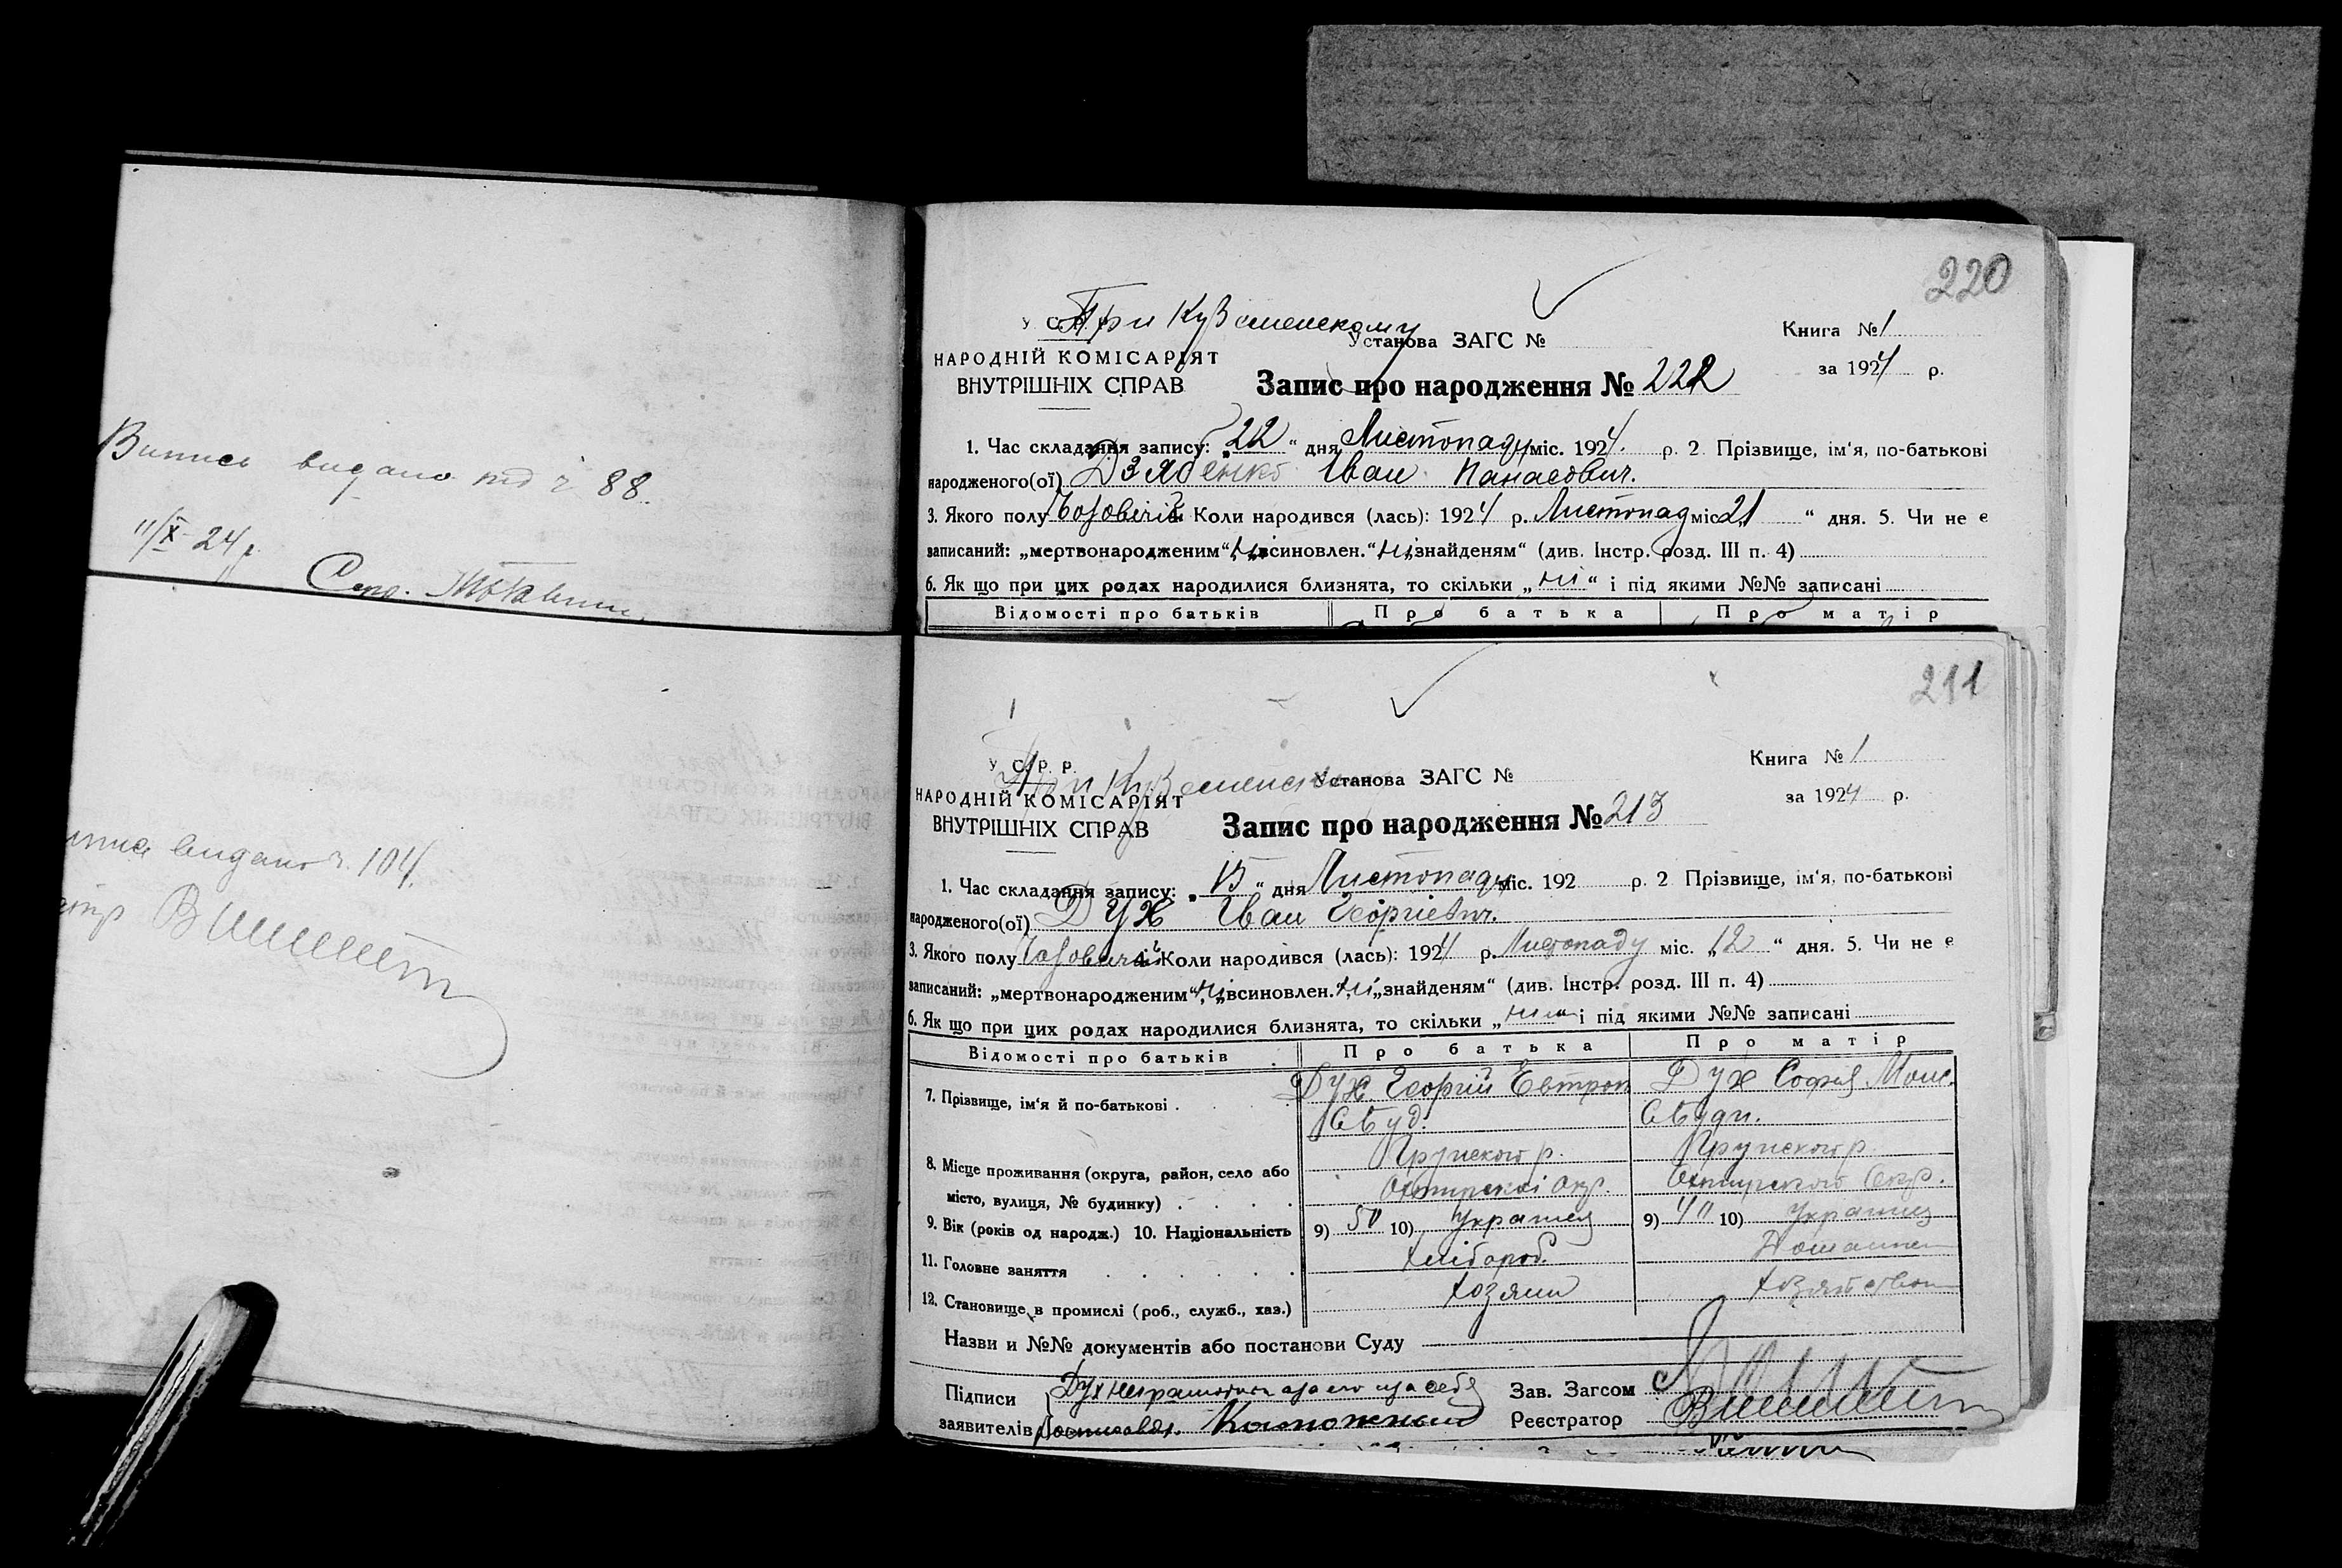 Випись видано під ч 88.
11/X-24 р.
Секр.
видано ч. 104.
220
При Куземенскому
У С. Р. Р.
Установа ЗАГС №
Книга № 1
НАРОДНІЙ КОМІСАРІЯТ
ВНУТРІШНІХ СПРАВ
за 1924 р.
Запис про народження № 222
1. Час складання запису: „22“ дня Листопаду міс. 1924 р. 2 Прізвище, ім'я, по-батькові
народженого(ої) Дзябенко Іван Панасович.
3. Якого полу Чоловічій 4. Коли народився (лась): 1924 р. Листопад міс. „21“ дня. 5. Чи не є
записаний: „мертвонародженим“ ні, „всиновлен.“ ні, „знайденям“ (див. Інстр. розд. III п. 4)
6. Як що при цих родах народилися близнята, то скільки „ні“ і під якими №№ записані
Відомості про батьків Про батька Про матір
211
При Куземенск
У С. Р. Р.
Установа ЗАГС №
Книга № 1
НАРОДНІЙ КОМІСАРІЯТ
ВНУТРІШНІХ СПРАВ
за 1924 р.
Запис про народження № 213
1. Час складання запису: „15“ дня Листопаду міс. 192 р. 2 Прізвище, ім'я, по-батькові
народженого(ої) Дух Іван Георгіевич.
3. Якого полу Чоловічій 4. Коли народився (лась): 1924 р. Листопаду міс. „12“ дня. 5. Чи не є
записаний: „мертвонародженим“ ні, „всиновлен. ні „знайденям“ (див. Інстр. розд. III п. 4)
6. Як що при цих родах народилися близнята, то скільки „ні“ і під якими №№ записані
Відомості про батьків Про батька Про матір
7. Прізвище, ім'я й по-батькові . Дух Георгій Евтроп Дух Софія Моис.
8. Місце проживання (округа, район, село або
місто, вулиця, № будинку)
Грунского р. Грунского р.
Охтирскоі Окр. Охтирского Окр.
9. Вік (років од народж.) 10. Національність 9) 50 10) Украинец 9) 40 10) Украинц
11. Головне заняття Хлібороб. Домашнем
12. Становище в промислі (роб., служб., хаз.) Хозяин Хозяйством
Назви и №№ документів або постанови Суду
Підписи Дух неграмотни а за его и за себя Зав. Загсом
заявителів Росписався. Реєстратор